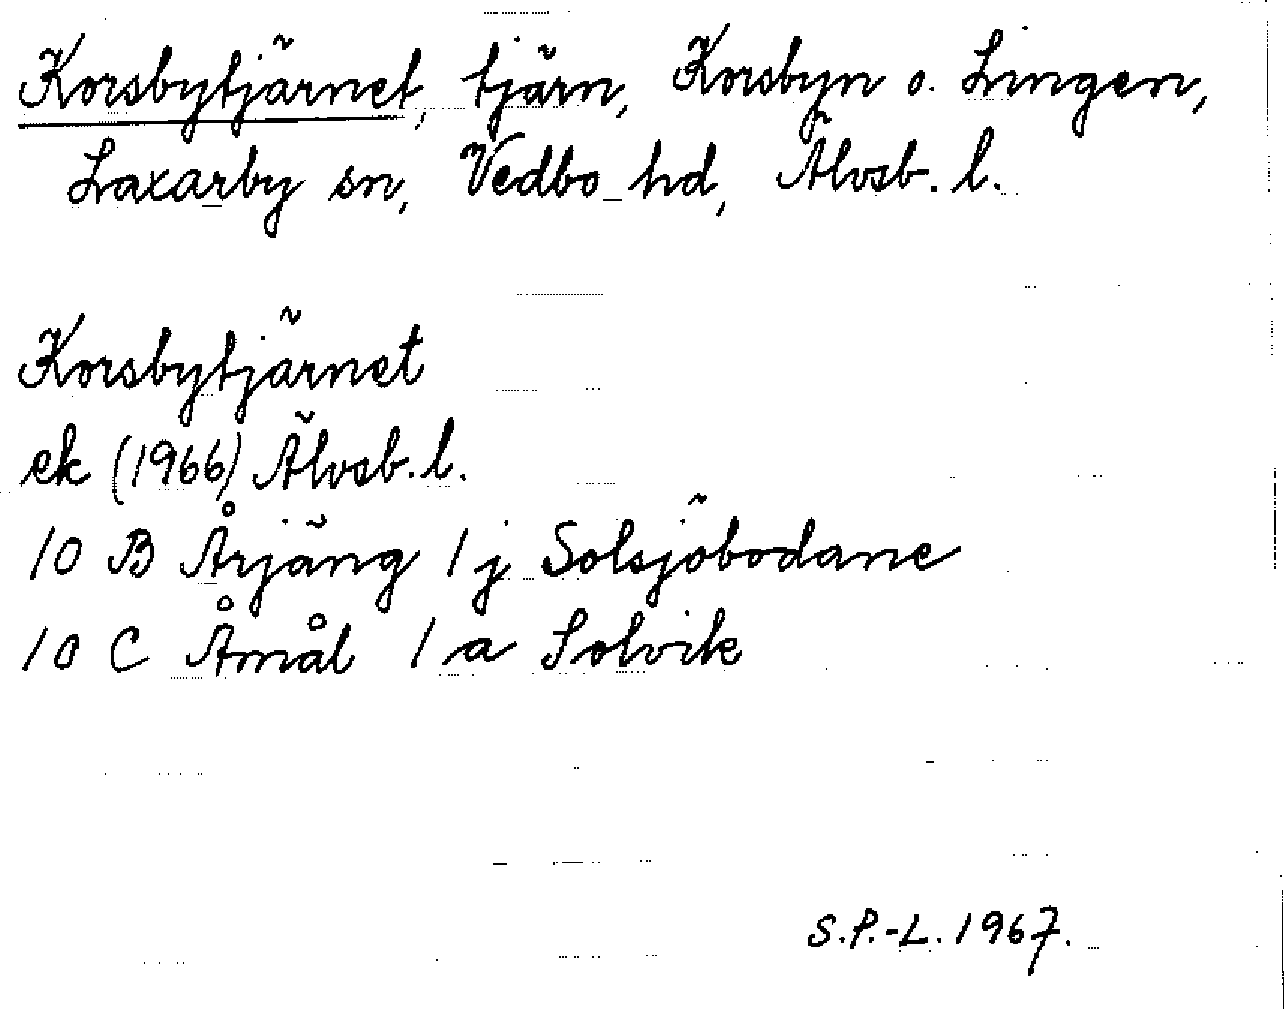 Korsbytjärnet, tjärn, Korsbyn o. Lingen,
Laxarby sn, Vedbo hd, Älvsb. l.
Korsbytjärnet
ek (1966) Älvsb. l.
10 B Årjäng 1 j Solsjöbodane
10 C Åmål 1 a Solvik
S.P.-L. 1967.